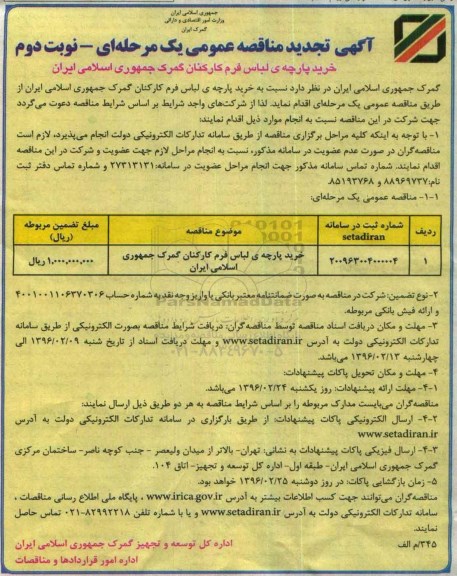 جمهوری اسلامی ایران
وزارت امور اقتصادی و دارائی
گمرک ایران
آگهی تجدید مناقصه عمومی یک مرحله‌ای – نوبت دوم
خرید پارچه ی لباس فرم کارکنان گمرک جمهوری اسلامی ایران
گمرک جمهوری اسلامی ایران در نظر دارد نسبت به خرید پارچه ی لباس فرم کارکنان گمرک جمهوری اسلامی ایران از
طریق مناقصه عمومی یک مرحله‌ای اقدام نماید. لذا از شرکت‌های واجد شرایط بر اساس شرایط مناقصه دعوت می‌گردد
جهت شرکت در این مناقصه نسبت به انجام موارد ذیل اقدام نمایند:
۱- با توجه به اینکه کلیه مراحل برگزاری مناقصه از طریق سامانه تدارکات الکترونیکی دولت انجام می‌پذیرد، لازم است
مناقصه‌گران در صورت عدم عضویت در سامانه مذکور، نسبت به انجام مراحل لازم جهت عضویت و شرکت در این مناقصه
اقدام نمایند. شماره تماس سامانه مذکور جهت انجام مراحل عضویت در سامانه: ۲۷۳۱۳۱۳۱ و شماره تماس دفتر ثبت
نام: ۸۸۹۶۹۷۳۷ و ۸۵۱۹۳۷۶۸.
۱-۱- مناقصه عمومی یک مرحله‌ای:
ردیف شماره ثبت در سامانه setadiran موضوع مناقصه مبلغ تضمین مربوطه (ریال)
۱ ۲۰۰۹۶۳۰۰۴۰۰۰۰۰۴ خرید پارچه ی لباس فرم کارکنان گمرک جمهوری اسلامی ایران ۱.۰۰۰.۰۰۰.۰۰۰ ریال
۲- نوع تضمین: شرکت در مناقصه به صورت ضمانتنامه معتبر بانکی یا واریز وجه نقد به شماره حساب ۴۰۰۱۰۰۱۱۰۶۳۷۰۳۰۶
و ارائه فیش بانکی مربوطه.
۳- مهلت و مکان دریافت اسناد مناقصه توسط مناقصه‌گران: دریافت شرایط مناقصه بصورت الکترونیکی از طریق سامانه
تدارکات الکترونیکی دولت به آدرس www.setadiran.ir و مهلت دریافت اسناد از تاریخ شنبه ۱۳۹۶/۰۲/۰۹ الی
چهارشنبه ۱۳۹۶/۰۲/۱۳ می‌باشد.
۴- مهلت و مکان تحویل پاکات پیشنهادات:
۴-۱- مهلت ارائه پیشنهادات: روز یکشنبه ۱۳۹۶/۰۲/۲۴ می‌باشد.
مناقصه‌گران می‌بایست مدارک مربوطه را بر اساس شرایط مناقصه به هر دو طریق ذیل ارسال نمایند:
۴-۲- ارسال الکترونیکی پاکات پیشنهادات: از طریق بارگزاری در سامانه تدارکات الکترونیکی دولت به آدرس
www.setadiran.ir
۴-۳- ارسال فیزیکی پاکات پیشنهادات به نشانی: تهران- بالاتر از میدان ولیعصر - جنب کوچه ناصر- ساختمان مرکزی
گمرک جمهوری اسلامی ایران- طبقه اول- اداره کل توسعه و تجهیز- اتاق ۱۰۴.
۵- زمان بازگشایی پاکات: در روز دوشنبه ۱۳۹۶/۰۲/۲۵ خواهد بود.
مناقصه‌گران می‌توانند جهت کسب اطلاعات بیشتر به آدرس www.irica.gov.ir ، پایگاه ملی اطلاع رسانی مناقصات ،
سامانه تدارکات الکترونیکی دولت به آدرس www.setadiran.ir و یا با شماره تلفن ۸۲۹۹۲۲۱۸-۰۲۱ تماس حاصل
نمایند.
۳۴۵/م الف
اداره کل توسعه و تجهیز گمرک جمهوری اسلامی ایران
اداره امور قراردادها و مناقصات